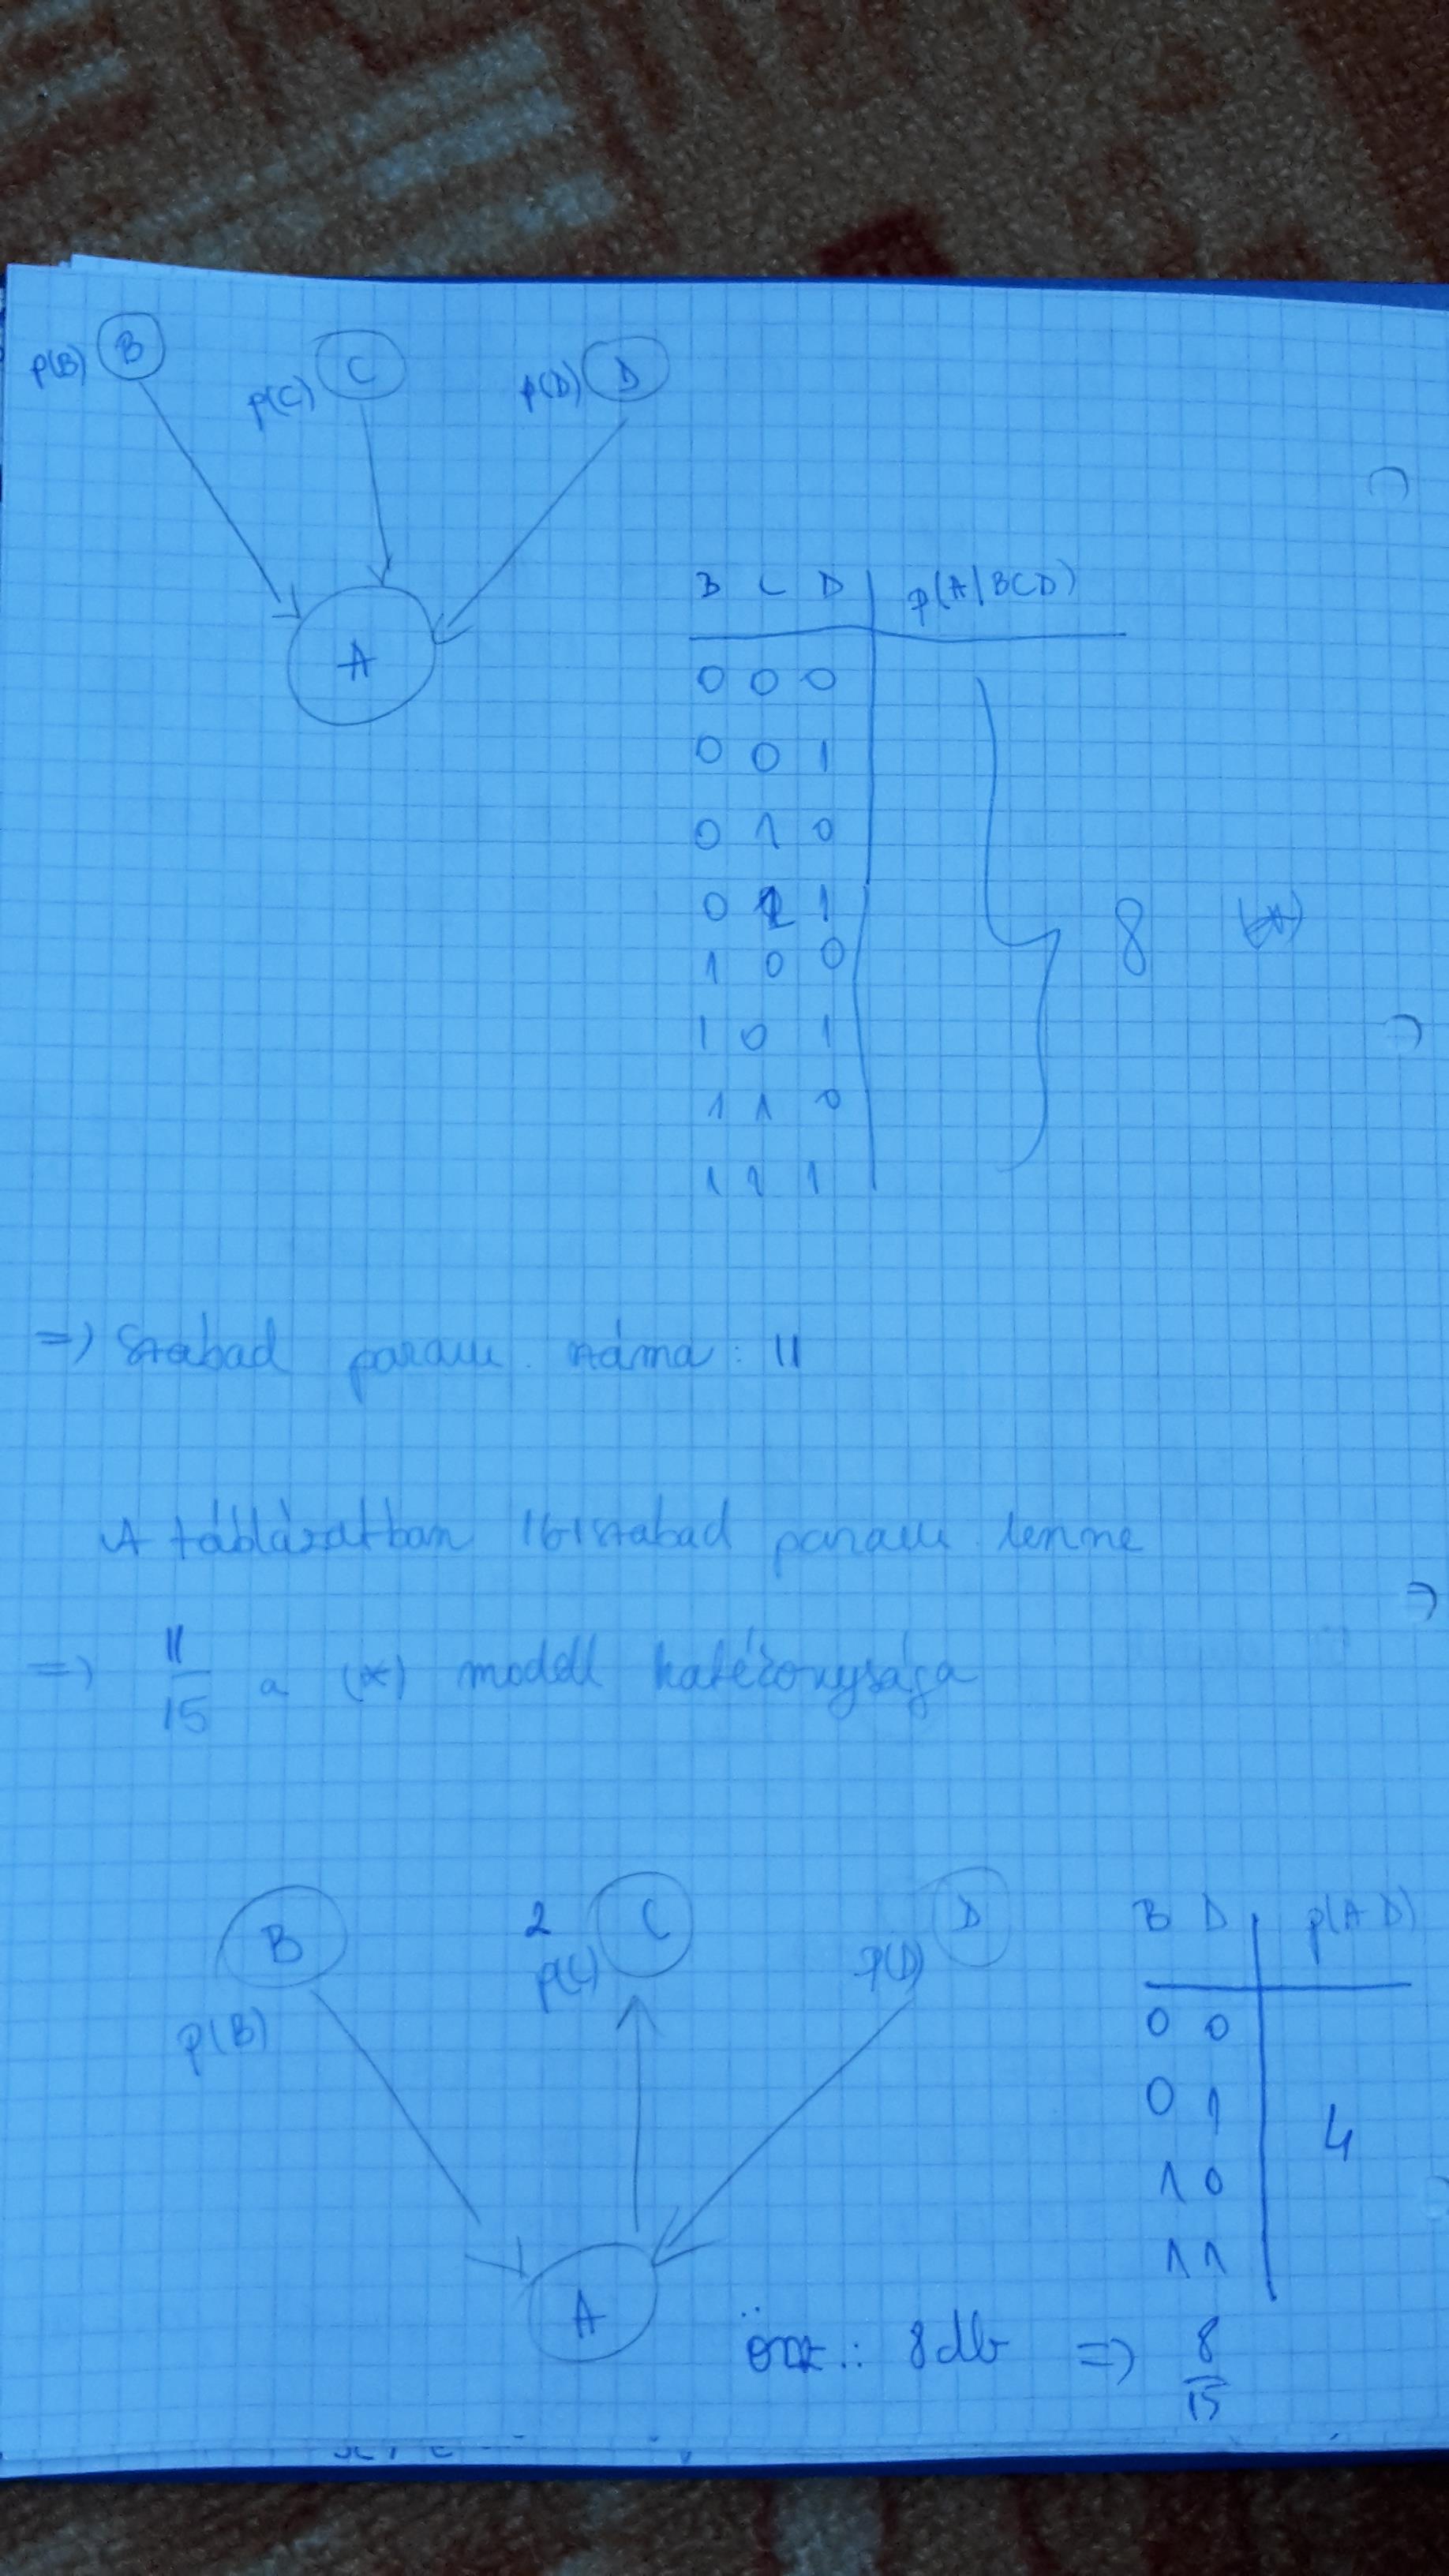 B C D
p(B) p(C) p(D)
A
B C D p(A|BCD)
0 0 0
0 0 1
0 1 0
0 1 1
8 (*)
1 0 0
1 0 1
1 1 0
1 1 1
=> Szabad param. száma: 11
A táblázatban szabad param lenne
=> 11/15 a (*) modell hatékonysága
B 2 C D
p(B) p(C) p(D)
A
B D p(A D)
0 0
0 1
4
1 0
1 1
össz.: 8db => 8/15